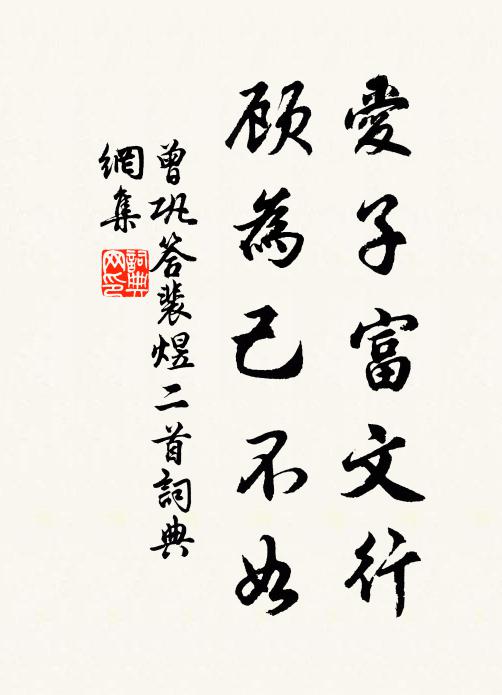 愛子富文行
顾為己不如
曾巩答裴煜二首詞典
網集
詞典
网印